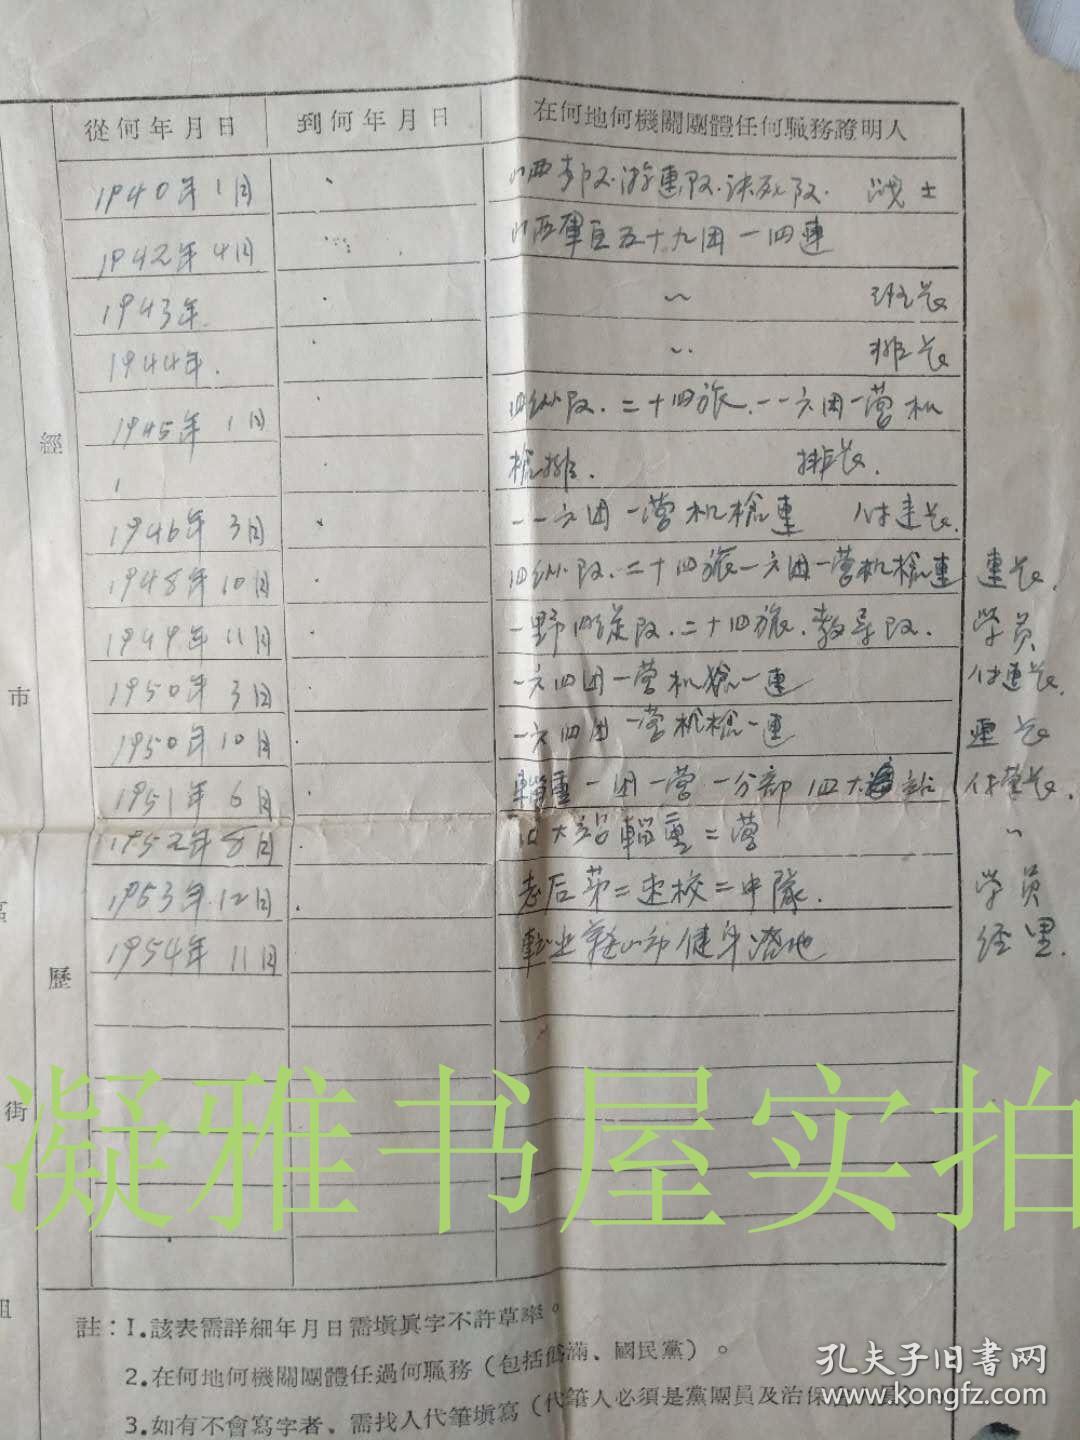 從何年月日 到何年月日 在何地何機關團體任何職務證明人
1940年1月 山西 队.游連队.决死队. 战士
1942年4月 山西軍区五十九团一四連
1943年. 〃 班长
1944年. 〃 排长
1945年1月 四纵队.二十四旅.一一六团一营机
枪排. 排长.
1946年3月 一一六团一营机槍連 付連长.
1948年10月 四纵队.二十四旅一六团一营机槍連 連长.
1949年11月 一野四 队.二十四旅.教导队. 学员
1950年3月 一六四团一营机槍一連 付連长.
1950年10月 一六四团一营机槍一連 連长
1951年6月 輜重一团一营一分部四大 站 付营长.
1952年8月 四大站輜重二营 〃
1953年12月 志后第二速校二中隊. 学员
1954年11月 転业鞍山市健身浴池 经里.
經
歷
市
區
街
組
註：1.該表需詳細年月日需塡眞字不許草率。
2.在何地何機關團體任過何職務（包括僞滿、國民黨）。
3.如有不會寫字者、需找人代筆塡寫（代筆人必須是黨團員及治保
凝雅书屋实拍
孔夫子旧書网
www.kongfz.com